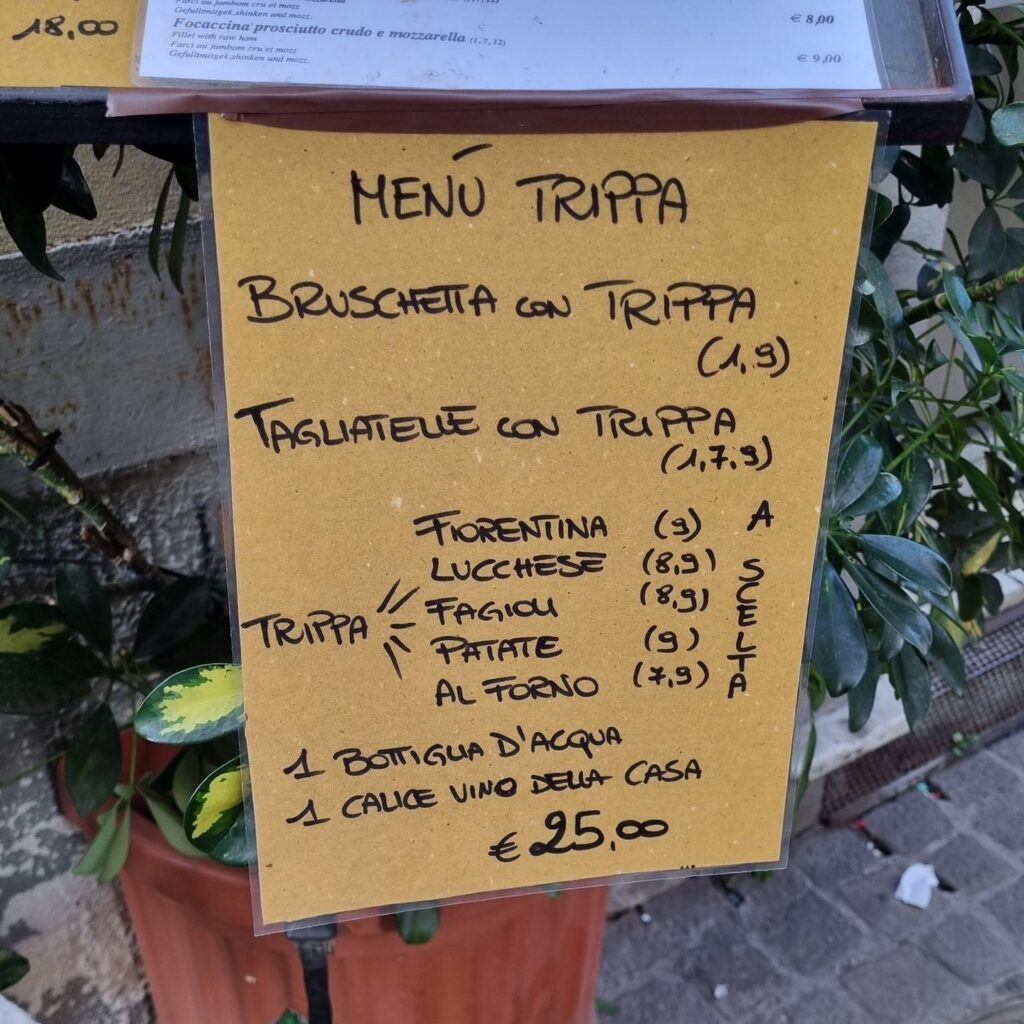 18,00
Farci au jambom cru et mozz
Gefulltmitgek.shinken und mozz.
€ 8,00
Focaccina prosciutto crudo e mozzarella (1, 7, 12)
Fillet with raw ham
Farci au jambom cru et mozz
Gefulltmitgek.shinken und mozz.
€ 9,00
MENÚ TRIPPA
BRUSCHETTA CON TRIPPA
(1,9)
TAGLIATELLE CON TRIPPA
(1,7,9)
FIORENTINA (9)
LUCCHESE (8,9)
TRIPPA FAGIOLI (8,9)
PATATE (9)
AL FORNO (7,9)
A SCELTA
1 BOTTIGLIA D'ACQUA
1 CALICE VINO DELLA CASA
€ 25,00